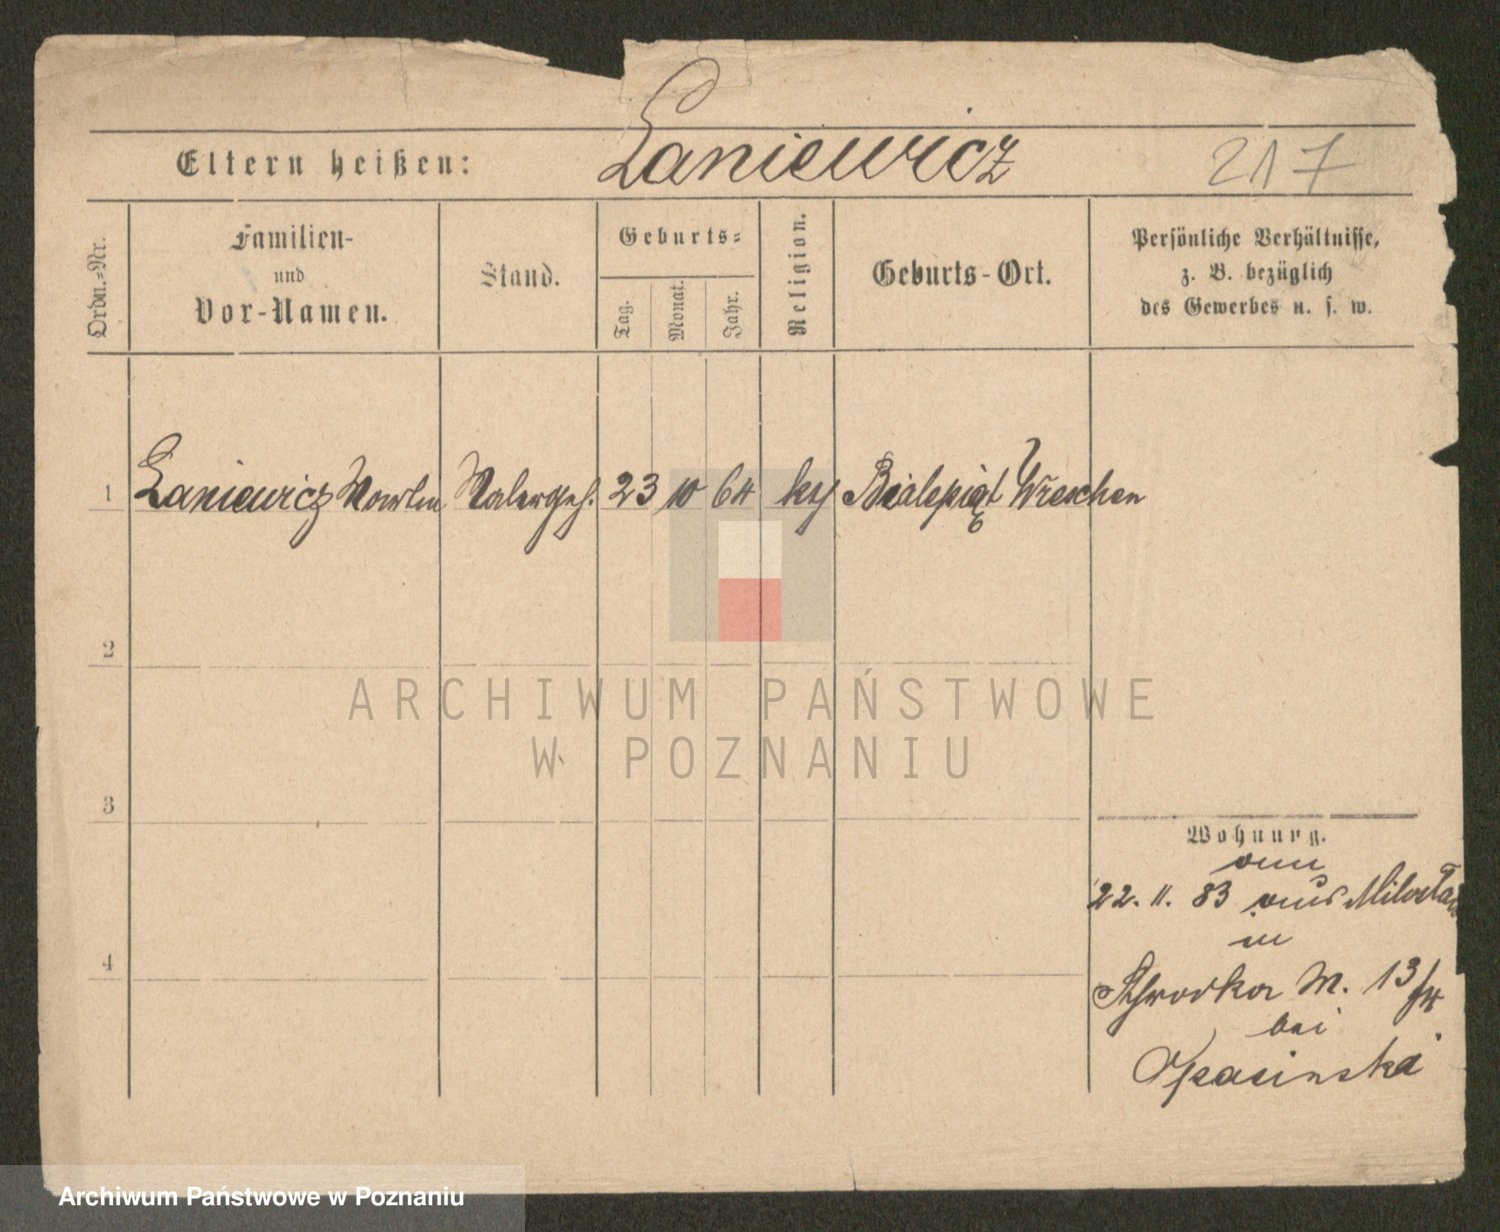 Eltern heißen:
Laniewicz
217
Ordn.-Nr.
Familien-
und
Vor-Namen.
Stand.
Geburts-
Tag.
Monat.
Jahr.
Religion.
Geburts-Ort.
Persönliche Verhältnisse,
z. B. bezüglich
des Gewerbes u. s. w.
1 Laniewicz Malergeh. 23 10 64 Bialepiąt Wreschen
2
ARCHIWUM PAŃSTWOWE
W POZNANIU
3
Wohnung.
22. 11. 83 aus
in
Schrodka M. 13
bei
Opasinski
4
Archiwum Państwowe w Poznaniu